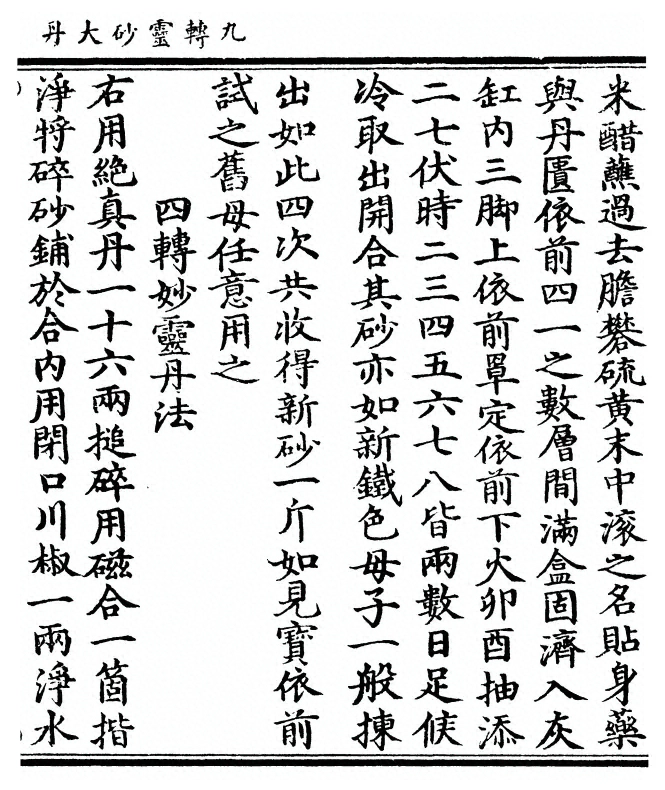 九轉靈砂大丹
米醋蘸過去膽礬硫黄末中滚之名貼身藥
與丹匱依前四一之數層間滿盒固濟入灰
缸内三脚上依前罩定依前下火卯酉抽添
二七伏時二三四五六七八皆兩數日足候
冷取出開合其砂亦如新鐵色母子一般揀
出如此四次共收得新砂一斤如見寶依前
試之舊母任意用之
四轉妙靈丹法
右用絶真丹一十六兩搥碎用磁合一箇揩
淨將碎砂鋪於合内用閉口川椒一兩淨水